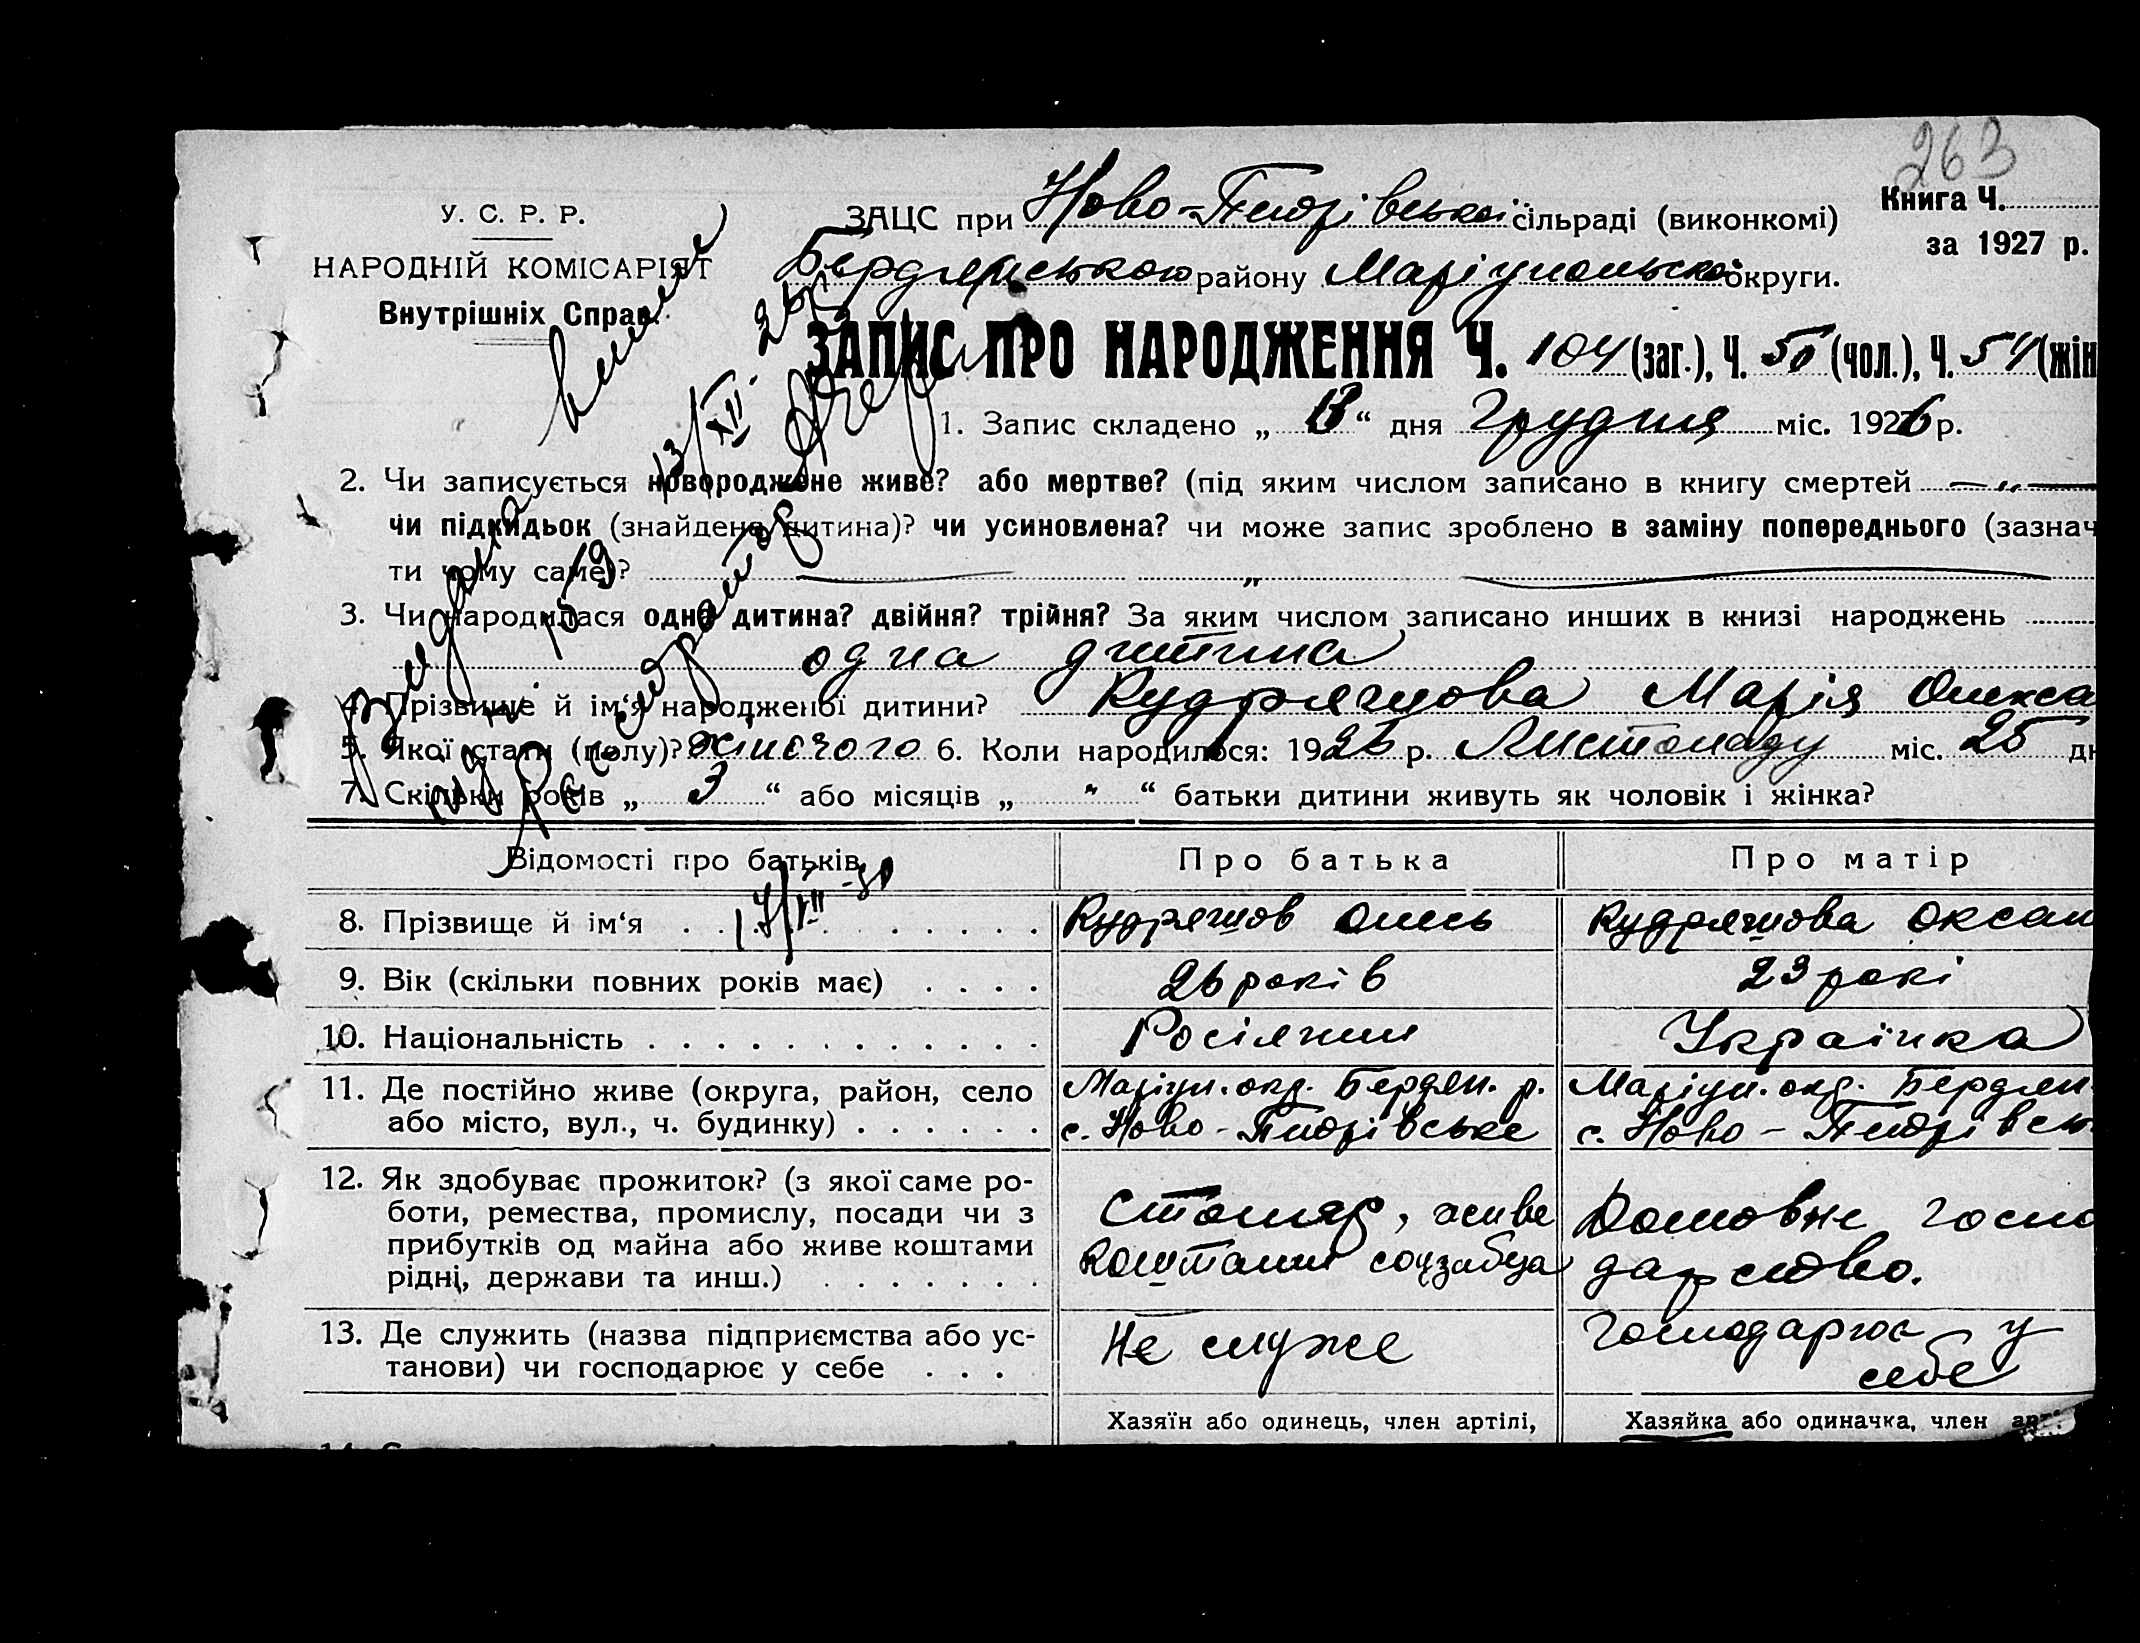 263
У. С. Р. Р.
НАРОДНІЙ КОМІСАРІЯТ
Внутрішніх Справ.
ЗАЦС при Ново-Петрівської сільраді (виконкомі)
Бердянського району Маріупольської округи.
Книга Ч.
за 1927 р.
ЗАПИС ПРО НАРОДЖЕННЯ Ч. 104 (заг.), Ч. 50 (чол.), Ч. 54 (жін
1. Запис складено „ 13 “ дня Грудня міс. 1926 р.
2. Чи записується новороджене живе? або мертве? (під яким числом записано в книгу смертей — „ —
чи підкидьок (знайдена дитина)? чи усиновлена? чи може запис зроблено в заміну попереднього (зазнач
ти чому саме)? — „ —
3. Чи народилася одна дитина? двійня? трійня? За яким числом записано инших в книзі народжень
одна дитина
4. Прізвище й ім‘я народженої дитини? Кудряшова Марія Олекса
5. Якої стати (полу)? жіночого 6. Коли народилося: 1926 р. Листопаду міс. 25 дн
7. Скільки років „ 3 “ або місяців „ " “ батьки дитини живуть як чоловік і жінка?
Відомості про батьків
Про батька
Про матір
8. Прізвище й ім‘я
Кудряшов Олесь
Кудряшова Оксан
9. Вік (скільки повних років має)
26 років
23 рокі
10. Національність
Росіянин
Українка
11. Де постійно живе (округа, район, село
або місто, вул., ч. будинку)
Маріуп. окр. Бердян. р.
с. Ново-Петрівське
Маріуп. окр. Бердян.
с. Ново-Петрівськ
12. Як здобуває прожиток? (з якої саме ро-
боти, ремества, промислу, посади чи з
прибутків од майна або живе коштами
рідні, держави та инш.)
Столяр, живе
коштами соцзабеза
Домовне госпо
дарство.
13. Де служить (назва підприємства або ус-
танови) чи господарює у себе
Не служе
Господарює у
себе
Хазяїн або одинець, член артілі,
Хазяйка або одиначка, член арті